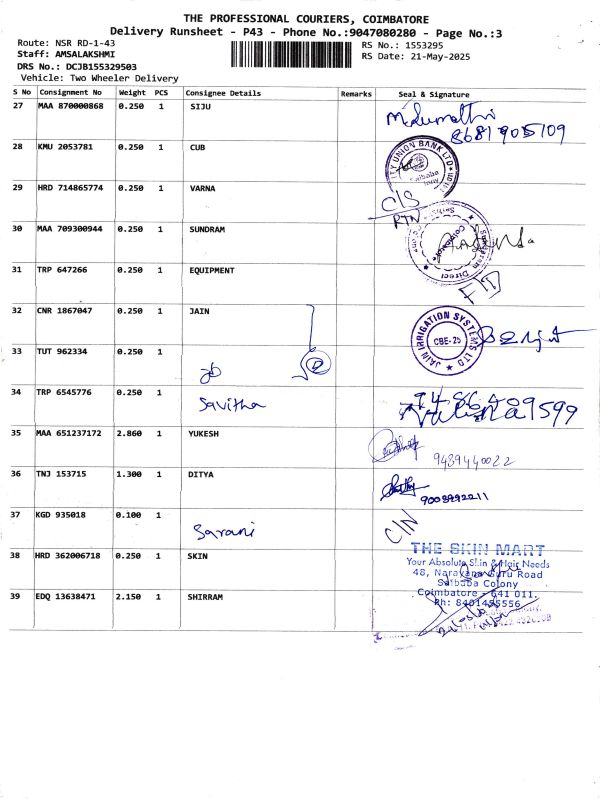 THE PROFESSIONAL COURIERS, COIMBATORE
Delivery Runsheet - P43 - Phone No.:9047080280 - Page No.:3
Route: NSR RD-1-43
RS No.: 1553295
Staff: AMSALAKSHMI
RS Date: 21-May-2025
DRS No.: DCJB155329503
Vehicle: Two Wheeler Delivery
S No Consignment No Weight PCS Consignee Details Remarks Seal & Signature
27 MAA 870000868 0.250 1 SIJU
8681905109
28 KMU 2053781 0.250 1 CUB
UNION BANK LTD
Saibaba
29 HRD 714865774 0.250 1 VARNA
C/S
RTN
30 MAA 709300944 0.250 1 SUNDRAM
Sundaram Direct
Coimbatore
31 TRP 647266 0.250 1 EQUIPMENT
32 CNR 1867047 0.250 1 JAIN
JAIN IRRIGATION SYSTEMS LTD
CBE-25
33 TUT 962334 0.250 1
34 TRP 6545776 0.250 1 Savitha
35 MAA 651237172 2.860 1 YUKESH
9489440022
36 TNJ 153715 1.300 1 DITYA
37 KGD 935018 0.100 1 Sarani
C/N
38 HRD 362006718 0.250 1 SKIN
THE SKIN MART
Your Absolute Skin & Hair Needs
48, Narayana Guru Road
Saibaba Colony
Coimbatore - 641 011.
Ph: 8401455556
39 EDQ 13638471 2.150 1 SHIRRAM